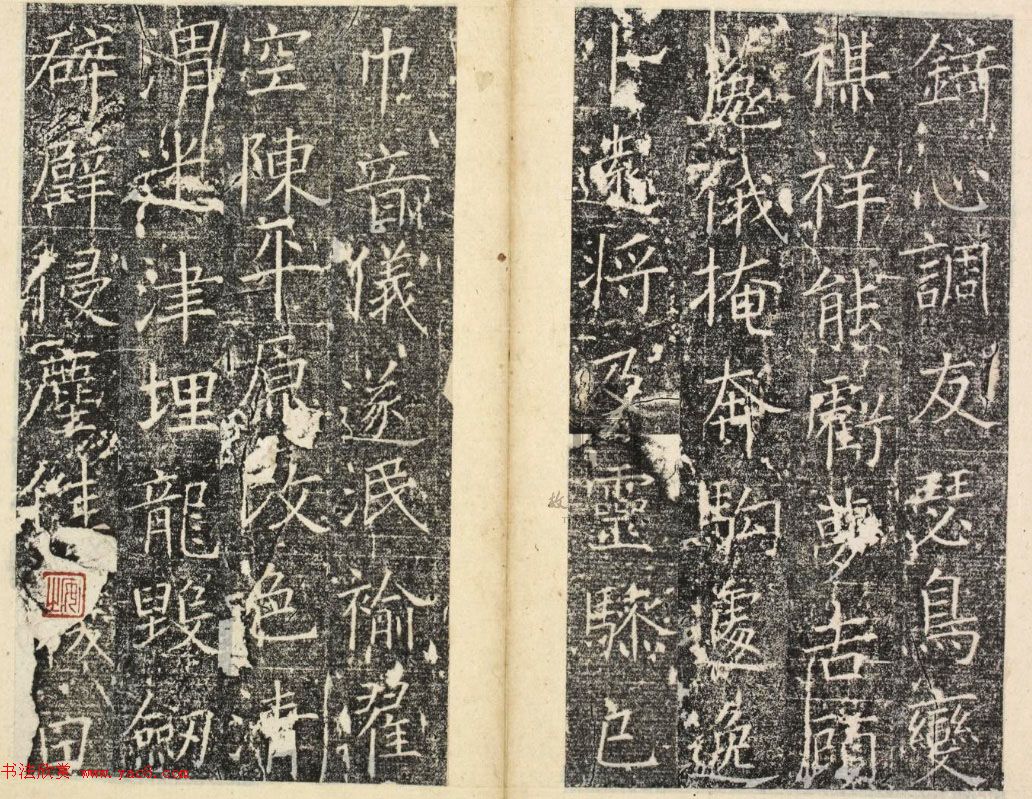 錡心調友瑟鳥變
禖祥能罷夢吉頭
儀掩奔駒處逸
上遠將及靈驂已
巾音儀遂泯褕翟
空陳平原改色清
渭迷津埋龍毀劍
辟侵塵
书法欣赏 www.yac8.com